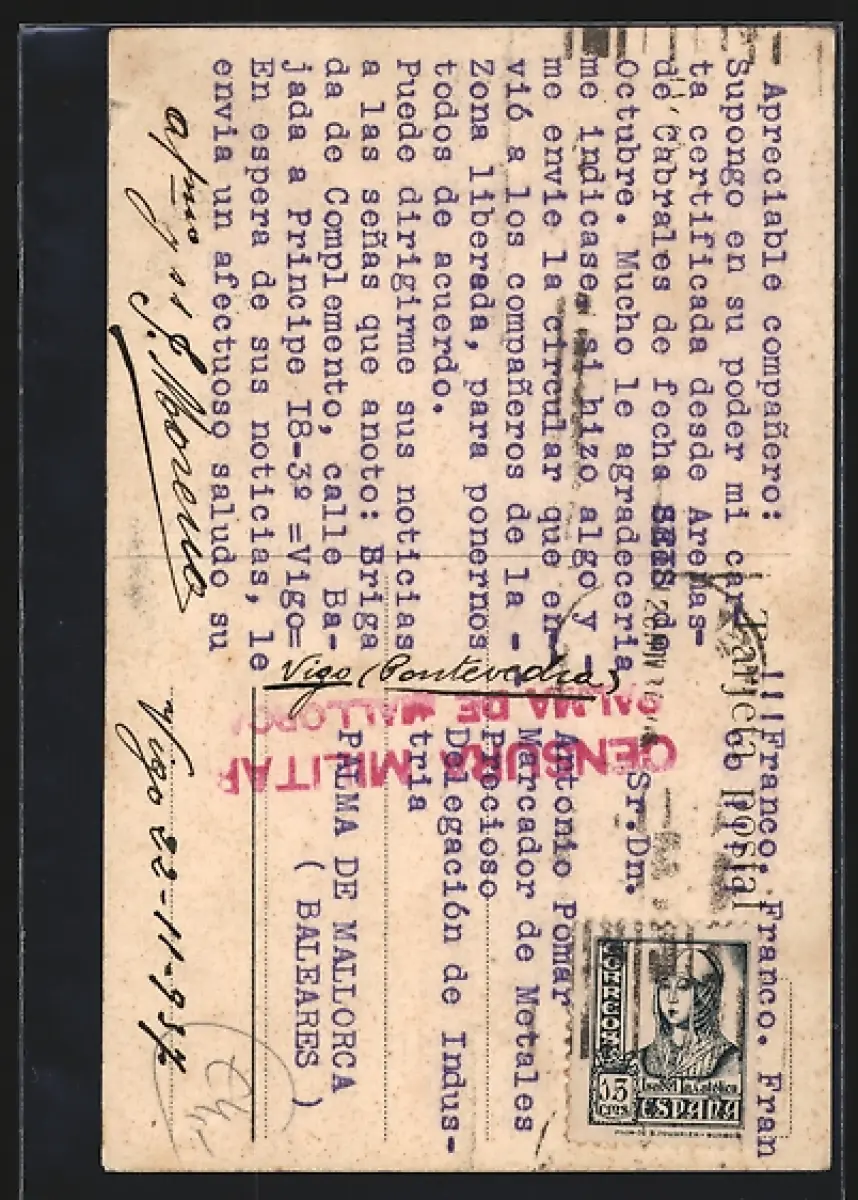 Apreciable compañero:
Supongo en su poder mi car-
ta certificada desde Arenas-
de Cabrales de fecha SEIS de
Octubre. Mucho le agradeceria
me indicase, si hizo algo y -
me envie la circular que en-
vió a los compañeros de la -
Zona liberada, para ponernos
todos de acuerdo.
Puede dirigirme sus noticias
a las señas que anoto: Briga
da de Complemento, calle Ba-
jada a Principe I8-3º =Vigo=
En espera de sus noticias, le
envia un afectuoso saludo su
J. Moreno
Vigo (Pontevedra)
!!!Franco. Franco. Fran
co !!!
Tarjeta postal
Sr.Dn.
Antonio Pomar
Marcador de Metales
Precioso
Delegación de Indus-
tria
PALMA DE MALLORCA
( BALEARES )
Vigo 22-11-937
CENSURA MILITAR
PALMA DE MALLORCA
CORREOS
15
CTS
Isabel la Católica
ESPAÑA